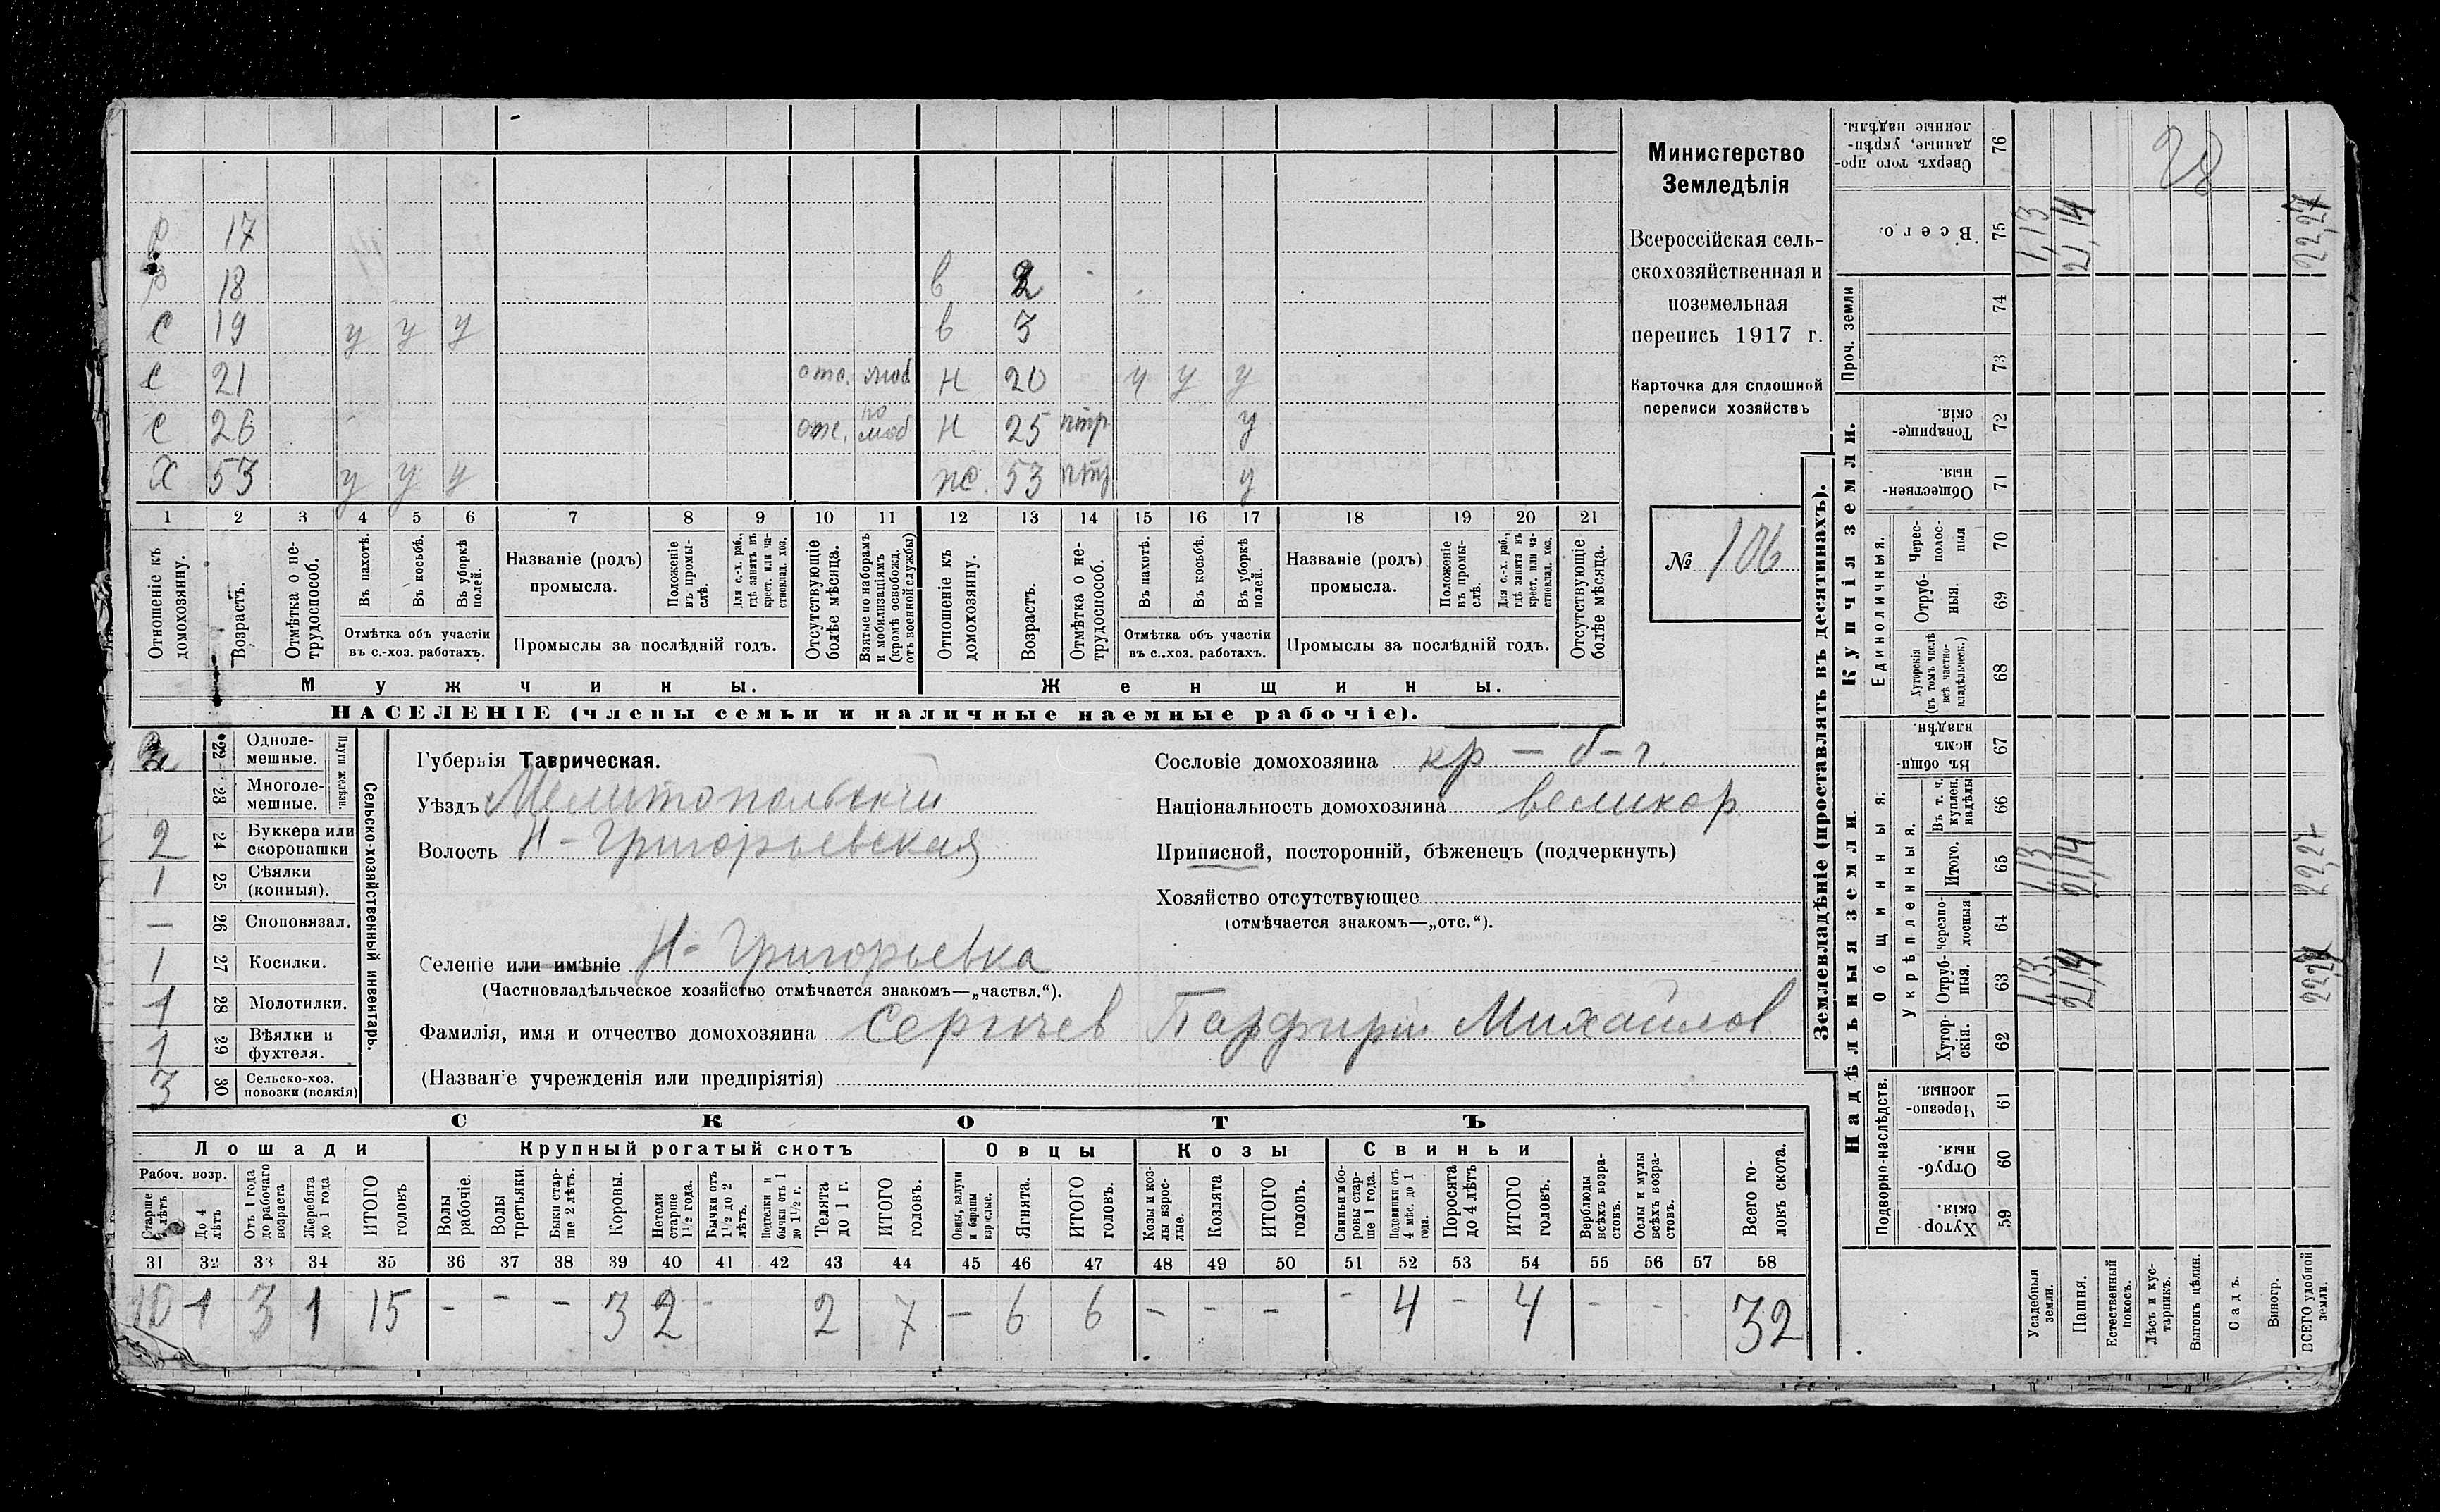 Министерство
Земледѣлія
Всероссійская сель-
скохозяйственная и
поземельная
перепись 1917 г.
Карточка для сплошной
переписи хозяйствъ
№ 106
17
18 в
С 19 у у у в 3
С 21 отс. моб Н 20 у у у
С 26 отс. по моб Н 25 нтр у
Х 53 у у у ж. 53 нтр у
1 2 3 4 5 6 7 8 9 10 11 12 13 14 15 16 17 18 19 20 21
Отношеніе къ домохозяину.
Возрастъ.
Отмѣтка о не-трудоспособ.
Въ пахотѣ.
Въ косьбѣ.
Въ уборкѣ полей.
Отмѣтка объ участіи въ с.-хоз. работахъ.
Названіе (родъ) промысла.
Положеніе въ промы-слѣ.
Для с.-х. раб., гдѣ занятъ въ крест. или ча-стновлад. хоз.
Промыслы за послѣдній годъ.
Отсутствующіе болѣе мѣсяца.
Взятые по наборамъ и мобилизаціямъ (кромѣ освобожд. отъ военной службы)
Отношеніе къ домохозяину.
Возрастъ.
Отмѣтка о не-трудоспособ.
Въ пахотѣ.
Въ косьбѣ.
Въ уборкѣ полей.
Отмѣтка объ участіи въ с..хоз. работахъ.
Названіе (родъ) промысла.
Положеніе въ промы-слѣ.
Для с.-х. раб., гдѣ занята въ крест. или ча-стновлад. хоз.
Промыслы за послѣдній годъ.
Отсутствующіе болѣе мѣсяца.
Мужчины. Женщины.
НАСЕЛЕНІЕ (члены семьи и наличные наемные рабочіе).
Сельско-хозяйственный инвентарь.
Плуги желѣзн.
22 Одноле-мешные.
23 Многоле-мешные.
2 24 Буккера или скоропашки
1 25 Сѣялки (конныя).
— 26 Сноповязал.
1 27 Косилки.
1 28 Молотилки.
1 29 Вѣялки и фухтеля.
3 30 Сельско-хоз. повозки (всякія)
Губернія Таврическая.
Уѣздъ Мелитопольскій
Волость Н-Григорьевская
Сословіе домохозяина кр - б-г.
Національность домохозяина великор
Приписной, посторонній, бѣженецъ (подчеркнуть)
Хозяйство отсутствующее
(отмѣчается знакомъ—„отс.“).
Селеніе или имѣніе Н-Григорьевка
(Частновладѣльческое хозяйство отмѣчается знакомъ—„частвл.“).
Фамилія, имя и отчество домохозяина Сергичев Парфирій Михайлов
(Названіе учрежденія или предпріятія)
СКОТЪ
Лошади Крупный рогатый скотъ Овцы Козы Свиньи
Рабоч. возр.
Старше 4 лѣтъ
До 4 лѣтъ
Отъ 1 года до рабочаго возраста
Жеребята до 1 года
ИТОГО головъ
Волы рабочіе.
Волы третьяки.
Быки стар-ше 2 лѣтъ.
Коровы.
Нетели старше 1½ года.
Бычки отъ 1½ до 2 лѣтъ.
Подтелки и бычки отъ 1 до 1½ г.
Телята до 1 г.
ИТОГО головъ.
Овцы, валухи и бараны взрослые.
Ягнята.
ИТОГО головъ.
Козы и коз-лы взрос-лые.
Козлята
ИТОГО головъ.
Свиньи и бо-ровы стар-ше 1 года.
Подсвинки отъ 4 мѣс. до 1 года.
Поросята до 4 лѣтъ
ИТОГО головъ.
Верблюды всѣхъ возра-стовъ.
Ослы и мулы всѣхъ возра-стовъ.
Всего го-ловъ скота.
31 32 33 34 35 36 37 38 39 40 41 42 43 44 45 46 47 48 49 50 51 52 53 54 55 56 57 58
10 1 3 1 15 - - - 3 2 - 2 7 - 6 6 - - - - 4 - 4 - - 32
Землевладѣніе (проставлять въ десятинахъ).
Купчія земли.
Надѣльныя земли.
76 Сверхъ того про-данные, укрѣп-ленные надѣлы.
28
75 Всего. 1,13 21,14 22,27
Проч. земли
74
73
72 Товарище-скія.
71 Обществен-ныя.
Единоличныя.
70 Черес-полос-ныя
69 Отруб-ныя.
68 Хуторскія (въ томъ числѣ всѣ частно-владѣльческ.)
Общинныя.
67 Въ общи-номъ владѣн.
Укрѣпленныя.
66 Въ т. ч. куплен. надѣлы
65 Итого. 1,13 21,14 22,27
64 Черезпо-лосныя
63 Отруб-ныя. 1,13 21,14 22,27
62 Хутор-скія.
Подворно-наслѣдств.
61 Черезпо-лосныя
60 Отруб-ныя.
59 Хутор-скія.
Усадебныя земли.
Пашня.
Естественный покосъ.
Лѣсъ и кус-тарникъ.
Выгонъ цѣлин.
Садъ.
Виногр.
ВСЕГО удобной земли.